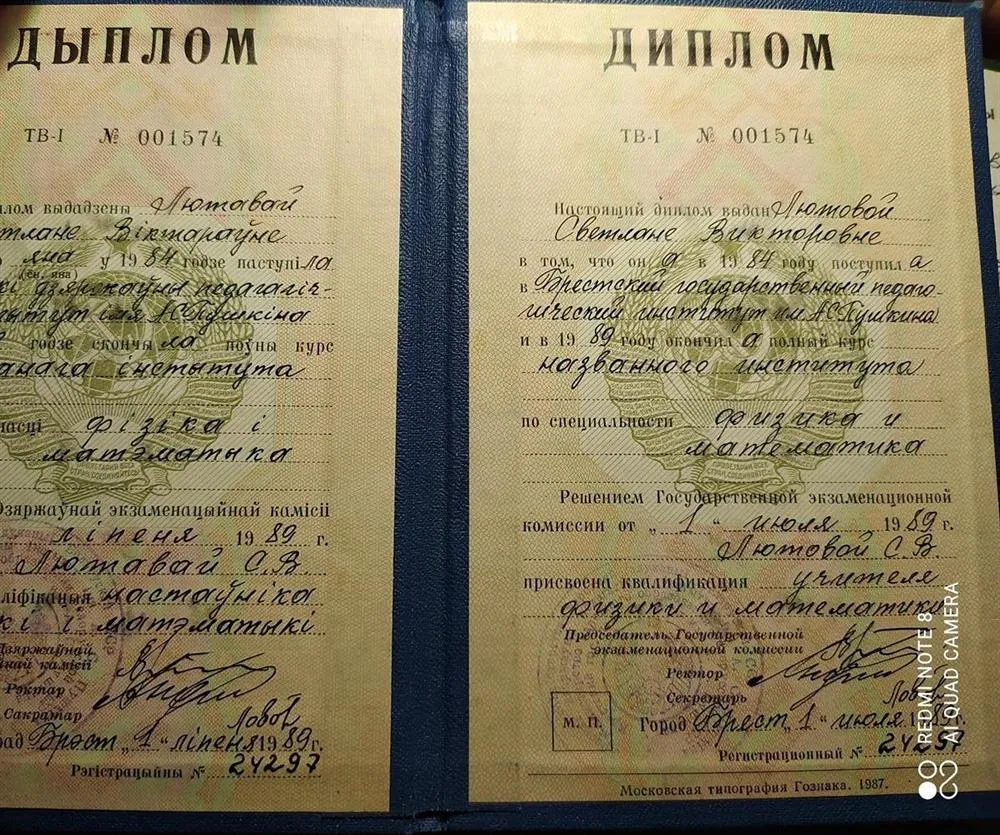 ДЫПЛОМ
ТВ-I № 001574
лом выдадзены Лютавай
тлане Віктараўне
яна у 1984 годзе паступіла
(ён, яна)
кі дзяржаўны педагагіч-
тытут імя А.С.Пушкіна
годзе скончыла поўны курс
анага інстытута
насці фізіка і
матэматыка
Дзяржаўнай экзаменацыйнай камісіі
ліпеня 1989 г.
Лютавай С.В.
ліфікацыя настаўніка
кі і матэматыкі
Дзяржаўнай
най камісіі
Рэктар
Сакратар
рад Брэст „1“ ліпеня 1989 г.
Рэгістрацыйны № 24297
ДИПЛОМ
ТВ-I № 001574
Настоящий диплом выдан Лютовой
Светлане Викторовне
в том, что он а в 1984 году поступил а
в Брестский государственный педаго-
гический институт им. А.С.Пушкина
и в 1989 году окончил а полный курс
названного института
по специальности физика и
математика
Решением Государственной экзаменационной
комиссии от „1“ июля 1989 г.
Лютовой С.В.
присвоена квалификация учителя
физики и математики
Председатель Государственной
экзаменационной комиссии
Ректор
Секретарь
М. П.
Город Брест „1“ июля 1989 г.
Регистрационный № 24297
Московская типография Гознака. 1987.
REDMI NOTE 8
AI QUAD CAMERA